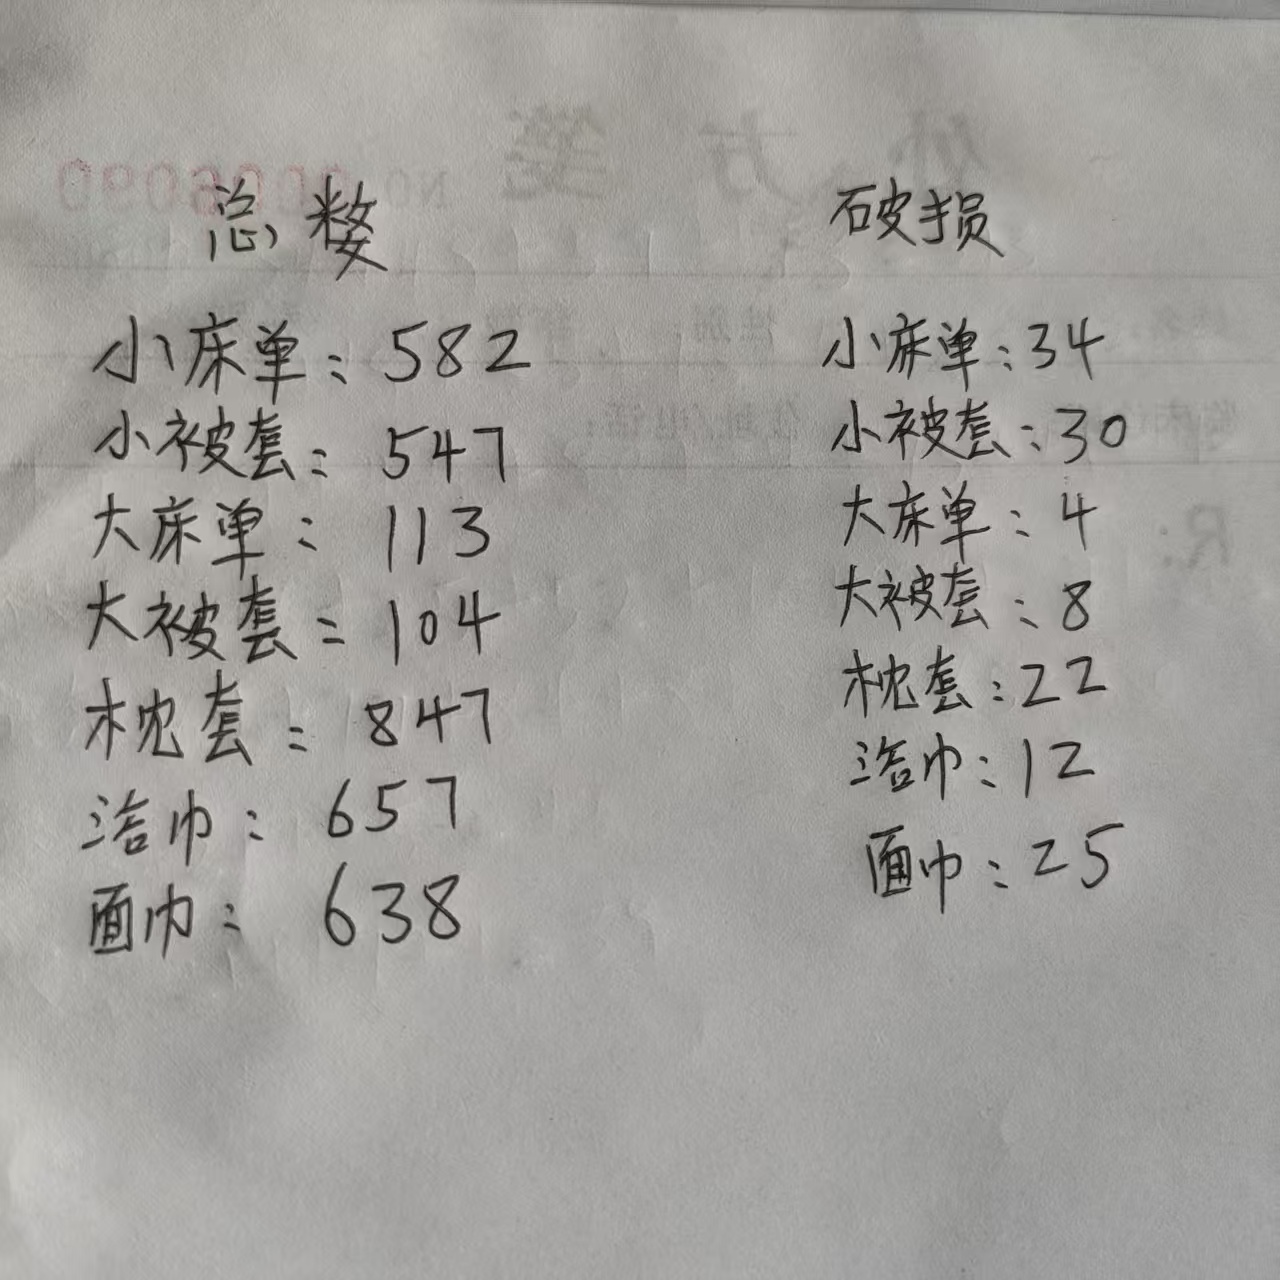 总数
小床单：582
小被套：547
大床单：113
大被套：104
枕套：847
浴巾：657
面巾：638
破损
小床单：34
小被套：30
大床单：4
大被套：8
枕套：22
浴巾：12
面巾：25
处方笺
NO.
R：